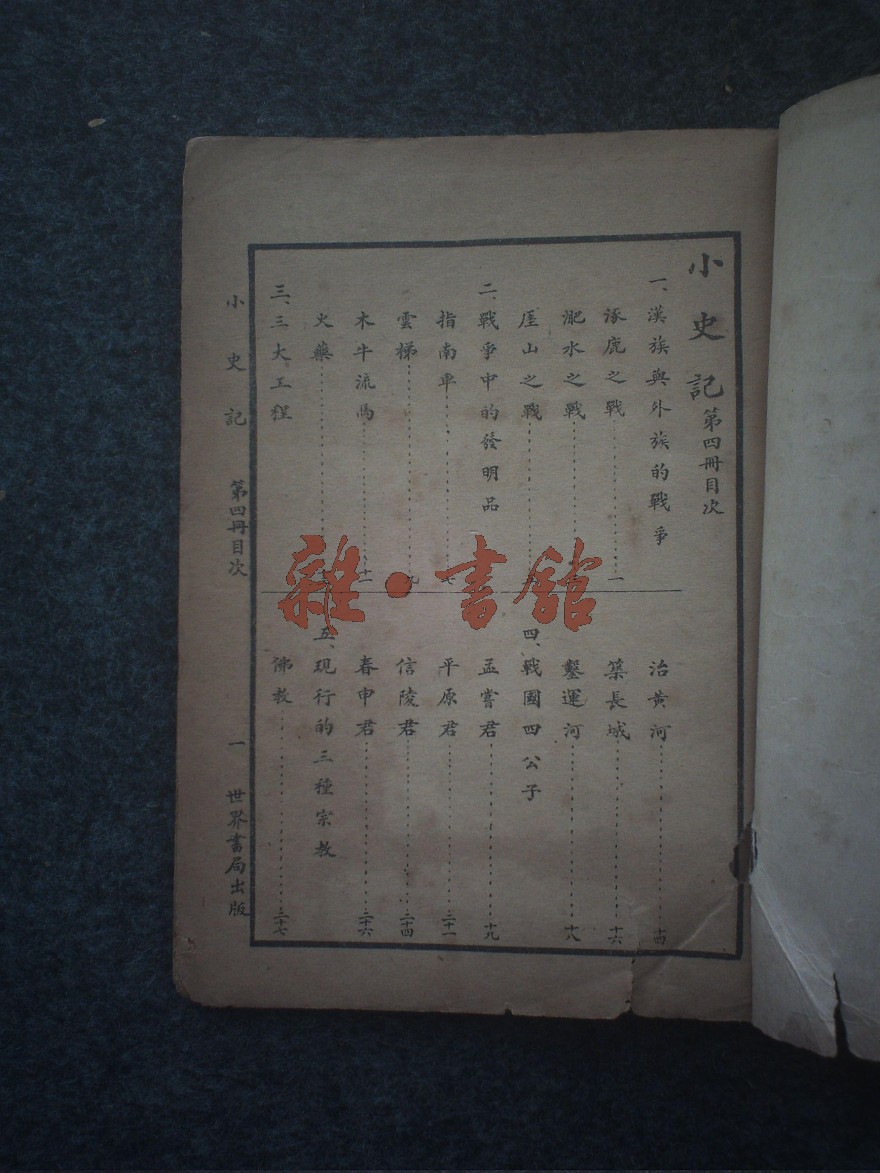 小史記 第四冊目次
一、漢族與外族的戰爭
涿鹿之戰…………一
淝水之戰…………
厓山之戰…………
二、戰爭中的發明品
指南車…………七
雲梯…………九
木牛流馬…………十一
火藥…………
三、三大工程
治黃河…………十四
築長城…………十六
鑿運河…………十八
四、戰國四公子
孟嘗君…………十九
平原君…………二十一
信陵君…………二十四
春申君…………二十六
五、現行的三種宗教
佛教…………二十七
小史記 第四冊目次 一 世界書局出版
雜·書館